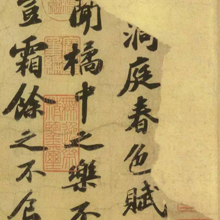 洞庭春色賦
聞橘中之樂不
豈霜餘之不食